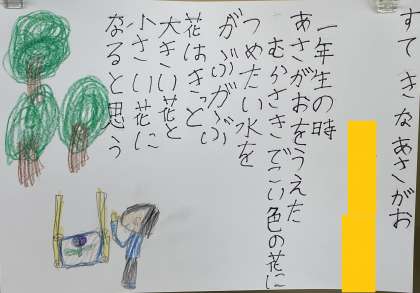 すてきなあさがお
一年生の時
あさがおをうえた
むらさきでこい色の花に
つめたい水を
がぶがぶ
花はきっと
大きい花と
小さい花に
なると思う